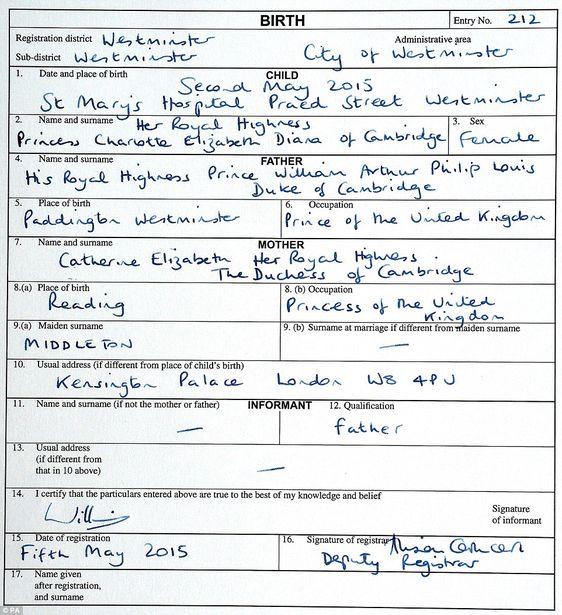 BIRTH
Entry No. 212
Registration district Westminster
Administrative area
Sub-district Westminster
City of Westminster
1. Date and place of birth
CHILD
Second May 2015
St Mary's Hospital Praed Street Westminster
2. Name and surname Her Royal Highness
3. Sex
Princess Charlotte Elizabeth Diana of Cambridge
Female
4. Name and surname
FATHER
His Royal Highness Prince William Arthur Philip Louis
Duke of Cambridge
5. Place of birth
6. Occupation
Paddington Westminster
Prince of the United Kingdom
7. Name and surname
MOTHER
Catherine Elizabeth Her Royal Highness
The Duchess of Cambridge
8.(a) Place of birth
8. (b) Occupation
Reading
Princess of the United
Kingdom
9.(a) Maiden surname
9. (b) Surname at marriage if different from maiden surname
MIDDLETON
—
10. Usual address (if different from place of child's birth)
Kensington Palace London W8 4PU
11. Name and surname (if not the mother or father)
INFORMANT
12. Qualification
—
Father
13. Usual address
(if different from
that in 10 above)
—
14. I certify that the particulars entered above are true to the best of my knowledge and belief
Signature
of informant
15. Date of registration
16. Signature of registrar
Fifth May 2015
Deputy Registrar
17. Name given
after registration,
and surname
© PA